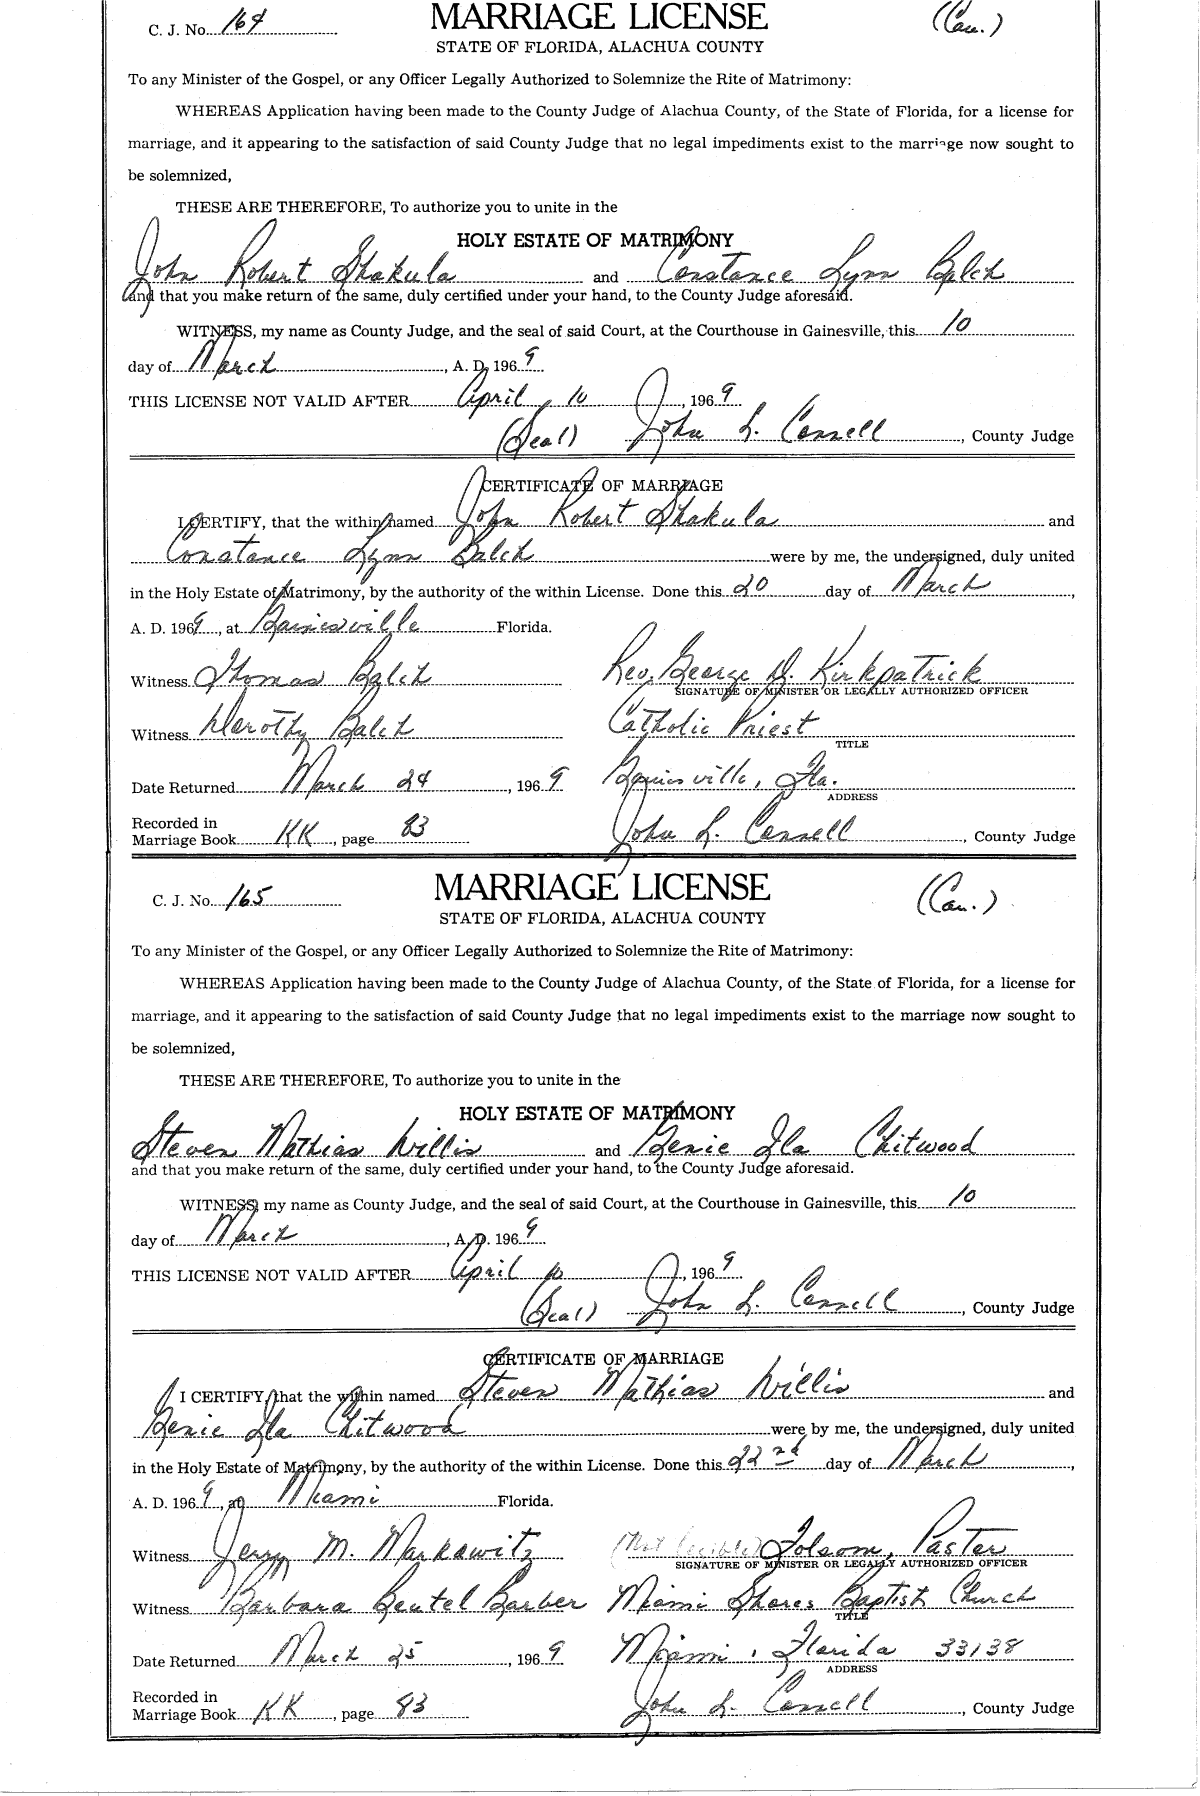 C. J. No. 164 MARRIAGE LICENSE (Cau.)
STATE OF FLORIDA, ALACHUA COUNTY
To any Minister of the Gospel, or any Officer Legally Authorized to Solemnize the Rite of Matrimony:
WHEREAS Application having been made to the County Judge of Alachua County, of the State of Florida, for a license for
marriage, and it appearing to the satisfaction of said County Judge that no legal impediments exist to the marriage now sought to
be solemnized,
THESE ARE THEREFORE, To authorize you to unite in the
HOLY ESTATE OF MATRIMONY
John Robert Shakula and Constance Lynn Balch
and that you make return of the same, duly certified under your hand, to the County Judge aforesaid.
WITNESS, my name as County Judge, and the seal of said Court, at the Courthouse in Gainesville, this 10
day of March, A. D. 1969
THIS LICENSE NOT VALID AFTER April 10, 1969
(Seal) John L. Connell, County Judge
CERTIFICATE OF MARRIAGE
I CERTIFY, that the within named John Robert Shakula and
Constance Lynn Balch were by me, the undersigned, duly united
in the Holy Estate of Matrimony, by the authority of the within License. Done this 20 day of March,
A. D. 1969, at Gainesville Florida.
Witness Thomas Balch Rev. George D. Kirkpatrick
SIGNATURE OF MINISTER OR LEGALLY AUTHORIZED OFFICER
Witness Dorothy Balch Catholic Priest
TITLE
Date Returned March 24, 1969 Gainesville, Fla.
ADDRESS
Recorded in
Marriage Book KK, page 83 John L. Connell, County Judge
C. J. No. 165 MARRIAGE LICENSE (Cau.)
STATE OF FLORIDA, ALACHUA COUNTY
To any Minister of the Gospel, or any Officer Legally Authorized to Solemnize the Rite of Matrimony:
WHEREAS Application having been made to the County Judge of Alachua County, of the State of Florida, for a license for
marriage, and it appearing to the satisfaction of said County Judge that no legal impediments exist to the marriage now sought to
be solemnized,
THESE ARE THEREFORE, To authorize you to unite in the
HOLY ESTATE OF MATRIMONY
Steven Mathias Willis and Genie Ila Chitwood
and that you make return of the same, duly certified under your hand, to the County Judge aforesaid.
WITNESS, my name as County Judge, and the seal of said Court, at the Courthouse in Gainesville, this 10
day of March, A. D. 1969
THIS LICENSE NOT VALID AFTER April 10, 1969
(Seal) John L. Connell, County Judge
CERTIFICATE OF MARRIAGE
I CERTIFY, that the within named Steven Mathias Willis and
Genie Ila Chitwood were by me, the undersigned, duly united
in the Holy Estate of Matrimony, by the authority of the within License. Done this 22nd day of March,
A. D. 1969, at Miami Florida.
Witness Jerry M. Markowitz (Not legible) Folsom, Pastor
SIGNATURE OF MINISTER OR LEGALLY AUTHORIZED OFFICER
Witness Barbara Beutel Barber Miami Shores Baptist Church
TITLE
Date Returned March 25, 1969 Miami, Florida 33138
ADDRESS
Recorded in
Marriage Book KK, page 83 John L. Connell, County Judge